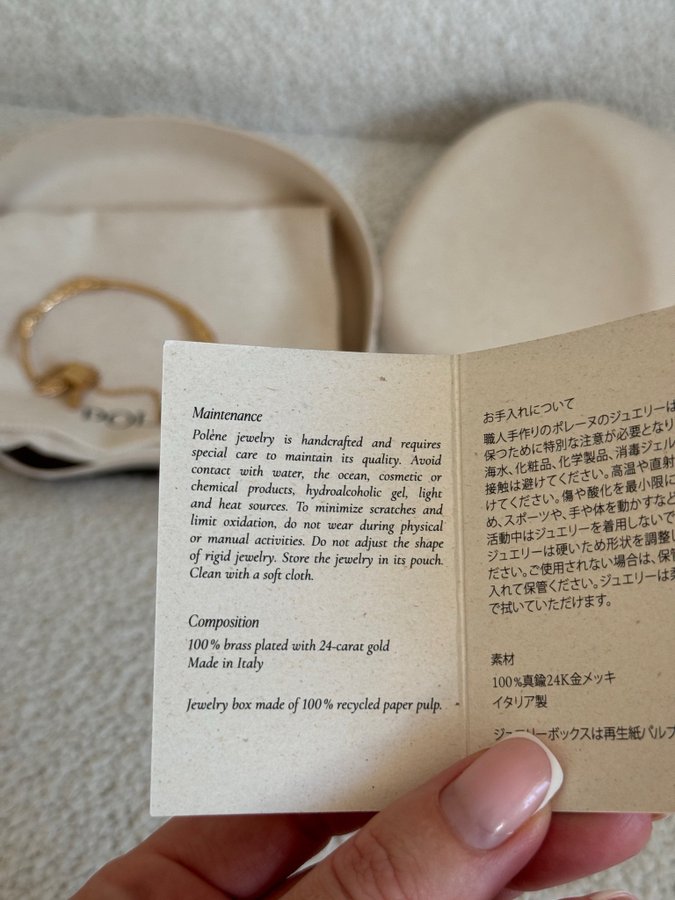 Maintenance
Polène jewelry is handcrafted and requires
special care to maintain its quality. Avoid
contact with water, the ocean, cosmetic or
chemical products, hydroalcoholic gel, light
and heat sources. To minimize scratches and
limit oxidation, do not wear during physical
or manual activities. Do not adjust the shape
of rigid jewelry. Store the jewelry in its pouch.
Clean with a soft cloth.
Composition
100% brass plated with 24-carat gold
Made in Italy
Jewelry box made of 100% recycled paper pulp.
お手入れについて
職人手作りのポレーヌのジュエリーは
保つために特別な注意が必要となり
海水、化粧品、化学製品、消毒ジェル
接触は避けてください。高温や直射
けてください。傷や酸化を最小限に
め、スポーツや、手や体を動かすなど
活動中はジュエリーを着用しないで
ジュエリーは硬いため形状を調整し
ださい。ご使用されない場合は、保管
入れて保管ください。ジュエリーは柔
で拭いていただけます。
素材
100%真鍮24K金メッキ
イタリア製
ジュエリーボックスは再生紙パルプ